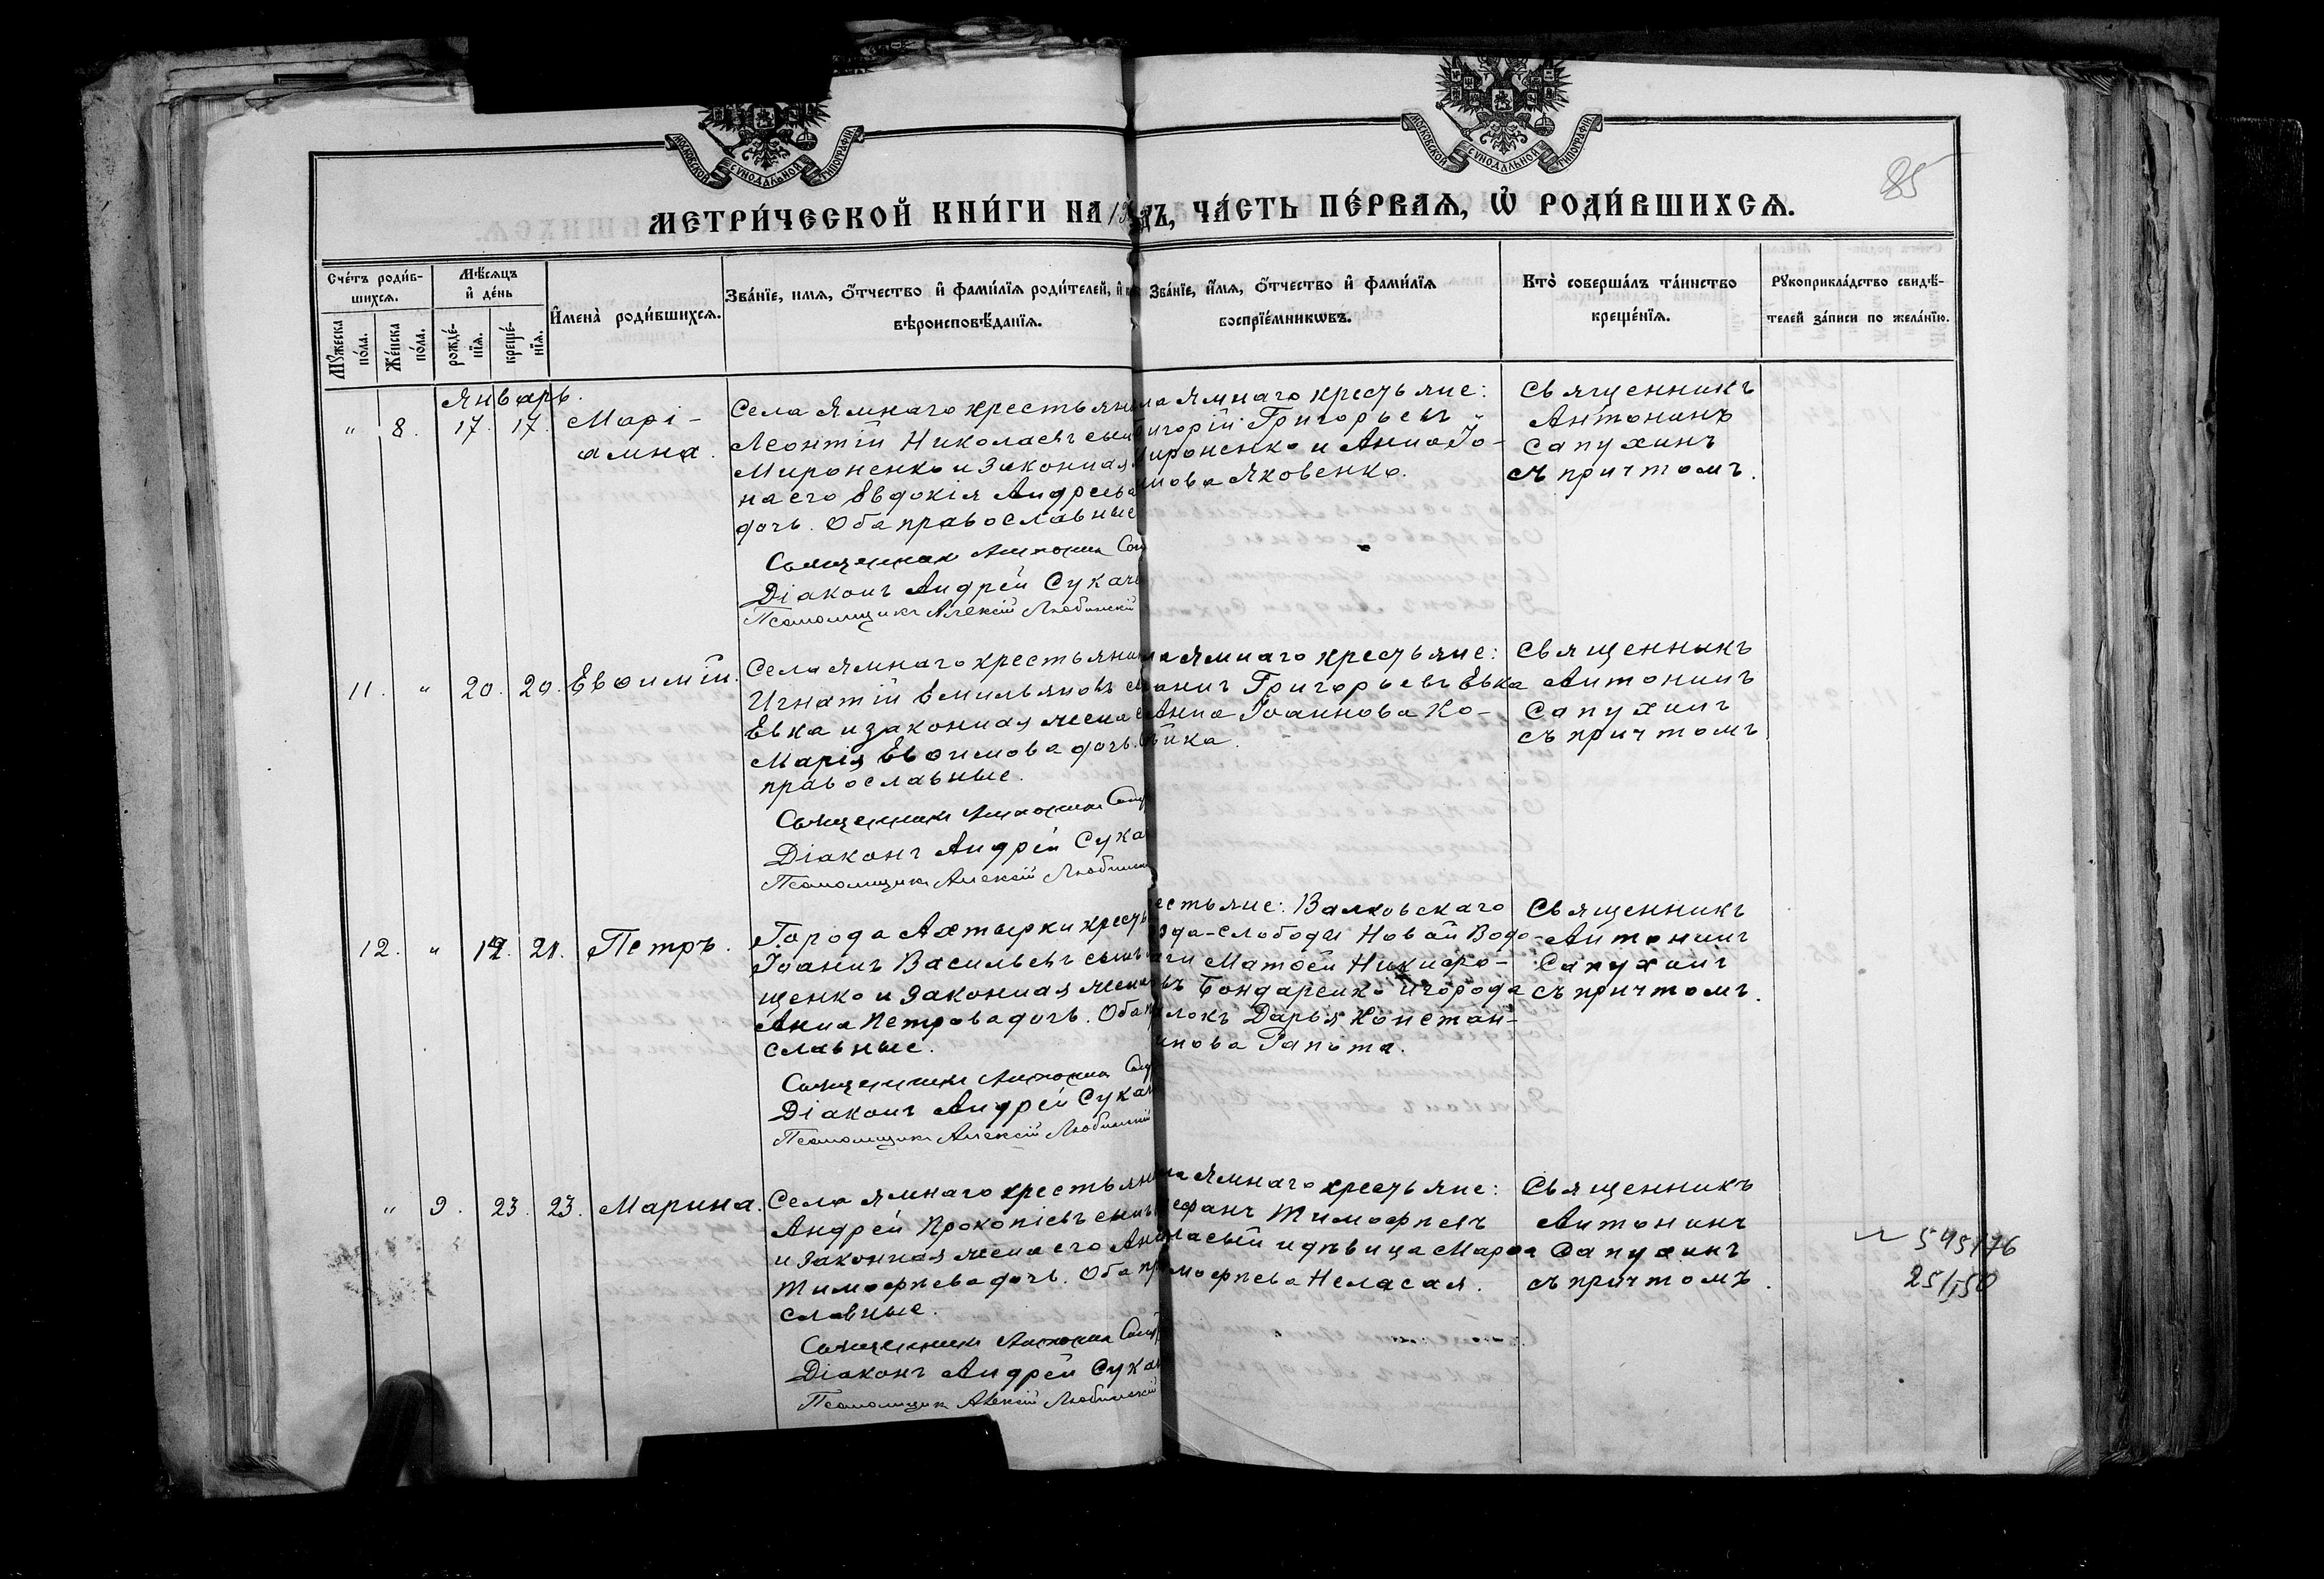 МОСКОВСКОЙ СѴНОДАЛЬНОЙ ТИПОГРАФІИ
МОСКОВСКОЙ СѴНОДАЛЬНОЙ ТИПОГРАФІИ
85
МЕТРИ́ЧЕСКОЙ КНИ́ГИ НА
ДЪ, ЧА́СТЬ ПЕ́РВАѦ, Ѡ҆ РОДИ́ВШИХСѦ.
Сче́тъ роди́в-
шихсѧ.
Мѣ́сѧцъ
и҆ де́нь
И҆мена̀ роди́вшихсѧ.
Зва́нїе, имѧ, ѻ҆́тчество и҆ фами́лїѧ роди́телей, и҆
вѣроисповѣ́данїѧ.
Зва́нїе, и҆́мѧ, ѻ҆́тчество и҆ фами́лїѧ
воспрїе́мникѡвъ.
Кто̀ соверша́лъ та́инство
креще́нїѧ.
Рꙋкоприкла́дство свидѣ́-
телей за́писи по жела́нїю.
Мꙋ́жеска
по́ла.
Же́нска
по́ла.
рожде́-
нїѧ.
креще́-
нїѧ.
Январь.
" 8. 17. 17. Марі-
амна.
Села Ямнаго крестьян
Леонтій Николаевъ сын
Мироненко и законная
на его Евдокія Андреева
дочь. Оба православные
Священник Антонин
Діаконъ Андрей Сукач
Псаломщикъ Алексій Любинскій
ла Ямнаго крестьяне:
игорій Григорьевъ
ироненко и Анна Іо-
нова Яковенко.
Священникъ
Антонинъ
Сапухинъ
съ причтомъ.
11. " 20. 20. Евѳимій.
Села Ямнаго крестьянин
Игнатій Емильяновъ
Евка и законная жена
Марія Евѳимова дочь.
православные.
Священникъ Антонин
Діаконъ Андрей Сука
Псаломщикъ Алексій Любинск
ла Ямнаго крестьяне:
аннъ Григорьевъ Евка
Анна Іоаннова Ко-
йка.
Священникъ
Антонинъ
Сапухинъ
съ причтомъ
12. " 21. Петръ.
Города Ахтырки крест
Іоаннъ Васильевъ сынъ
щенко и законная жена
Анна Петрова дочь. Оба п
славные.
Священникъ Антонин
Діаконъ Андрей Сукач
Псаломщикъ Алексій Любинскій
естьяне: Валковскаго
зда-слободы Новой Водо-
аги Матѳей Никифо-
въ Бондаренко и города
алокъ Дарья Констан-
инова Гапота.
Священникъ
Антонинъ
Сапухинъ
съ причтомъ.
" 9. 23. 23. Марина.
Села Ямнаго крестьян
Андрей Прокопіевъ сынъ
и законная жена его Ан
Тимофеева дочь. Оба пр
славные.
Священникъ Антонин
Діаконъ Андрей Сукач
Псаломщикъ Алексій Любинскій
ла Ямнаго крестьяне:
ефанъ Тимофеевъ
ласый и дѣвица Марѳа
мофеева Неласая.
Священникъ
Антонинъ
Сапухинъ
съ причтомъ.
545/76